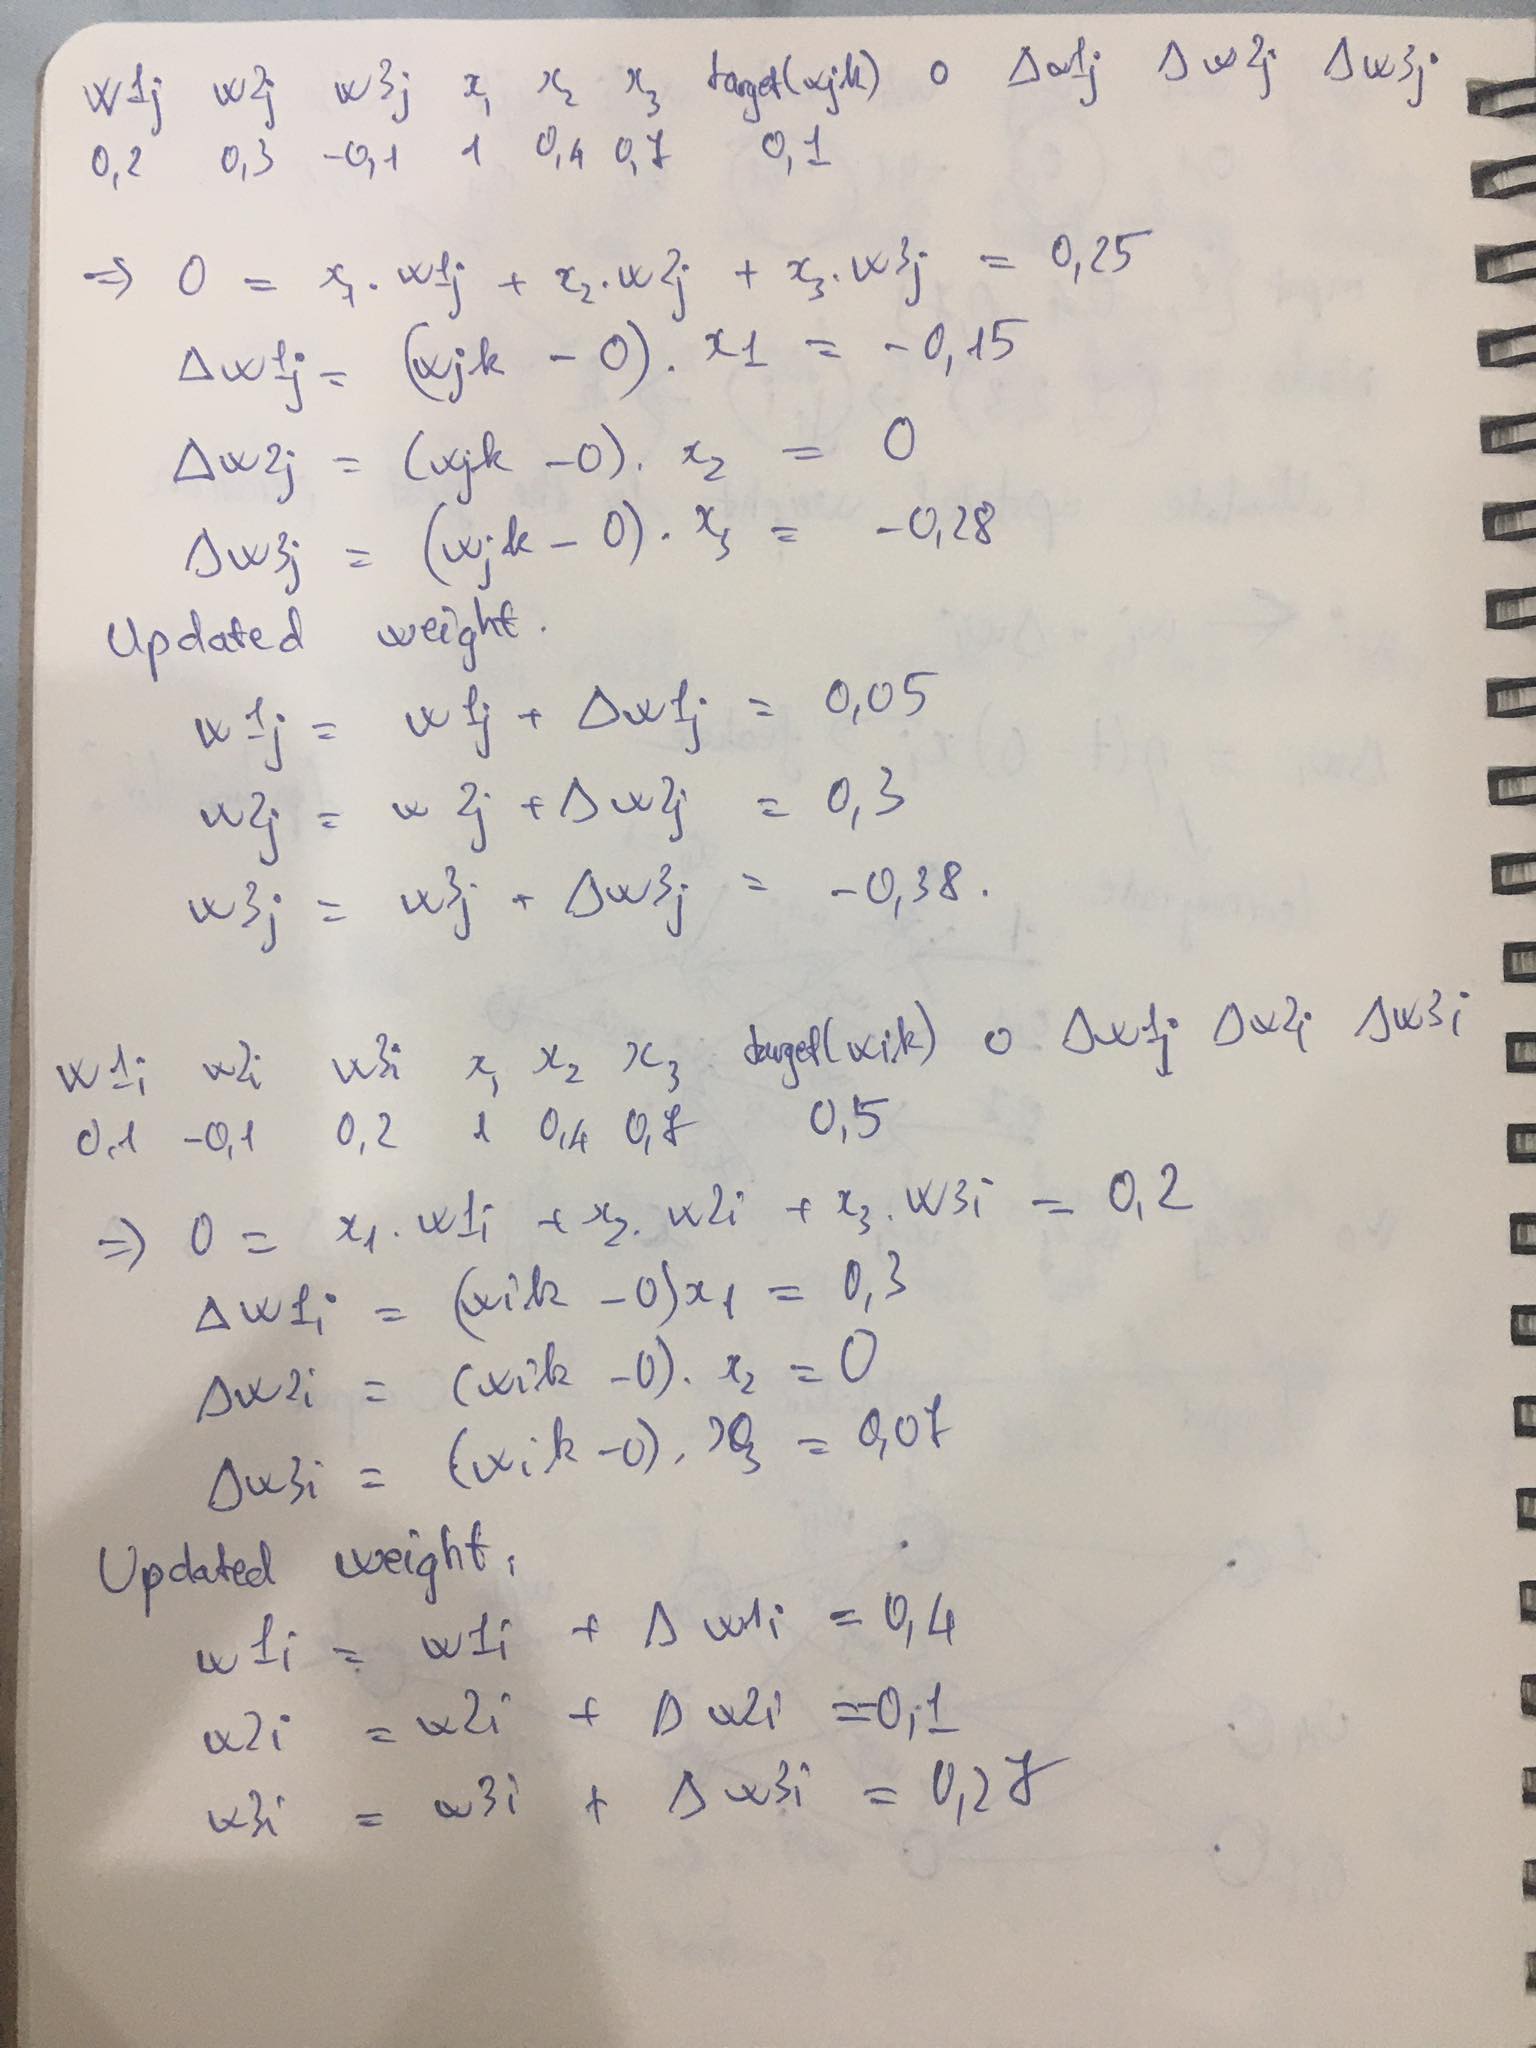 w1j w2j w3j x₁ x₂ x₃ target(wjk) o Δw1j Δw2j Δw3j
0,2 0,3 -0,1 1 0,4 0,7 0,1
=> O = x₁.w1j + x₂.w2j + x₃.w3j = 0,25
Δw1j = (wjk - O). x1 = -0,15
Δw2j = (wjk - O). x₂ = 0
Δw3j = (wjk - O). x₃ = -0,28
Updated weight.
w1j = w1j + Δw1j = 0,05
w2j = w2j + Δw2j = 0,3
w3j = w3j + Δw3j = -0,38.
w1i w2i w3i x₁ x₂ x₃ target(wik) o Δw1j Δw2i Δw3i
0,1 -0,1 0,2 1 0,4 0,7 0,5
=> O = x₁.w1i + x₂.w2i + x₃.w3i = 0,2
Δw1i = (wik - O)x₁ = 0,3
Δw2i = (wik - O). x₂ = 0
Δw3i = (wik - O). x₃ = 0,07
Updated weight,
w1i = w1i + Δw1i = 0,4
w2i = w2i + Δw2i = -0,1
w3i = w3i + Δw3i = 0,27